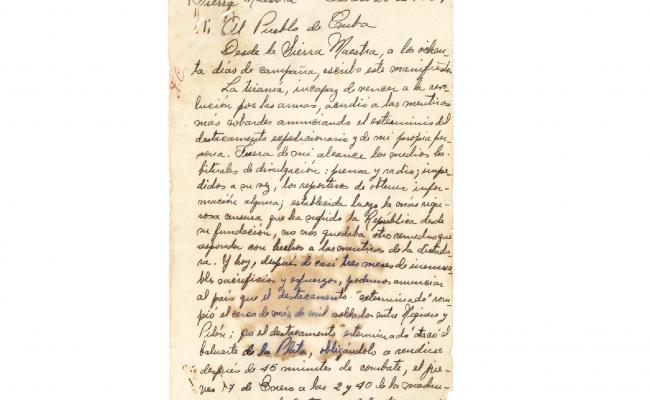 Sierra Maestra
Al Pueblo de Cuba
Desde la Sierra Maestra, a los ochen-
ta días de campaña, escribo este manifiesto.
La tiranía, incapaz de vencer a la revo-
lución por las armas, acudió a las mentiras
más cobardes anunciando el exterminio del
destacamento expedicionario y de mi propia per-
sona. Fuera de mi alcance los medios ha-
bituales de divulgación: prensa y radio; impe-
didos a su vez, los reporteros de obtener infor-
mación alguna; establecida luego la más rigu-
rosa censura que ha sufrido la República desde
su fundación, no nos quedaba otro remedio que
responder con hechos a las mentiras de la dictadu-
ra. Y hoy, después de casi tres meses de innumera-
bles sacrificios y esfuerzos, podemos anunciar
al país que el destacamento "exterminado" rom-
pió el cerco de más de mil soldados entre Niquero y
Pilón; que el destacamento "exterminado" atacó el
baluarte de la Plata, obligándolo a rendirse
después de 45 minutos de combate, el jue-
ves 17 de Enero a las 2 y 40 de la madru-